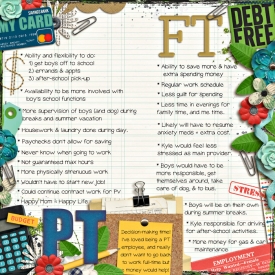 SAVINGS BANK
NY CARD
FT
DEBT
FREE
• Ability and flexibility to do:
1) get boys off to school
2) errands & appts
3) after-school pick-up
• Availability to be more involved with
boy's school functions
• More supervision of boys (and dog) during
breaks and summer vacation
• Housework & laundry done during day.
• Paychecks don't allow for saving
• Never know when going to work
• Not guaranteed max hours
• More physically strenuous work
• Wouldn't have to start new job!
• Could continue contract work for PV
• Happy Mom = Happy Life
• Ability to save more & have
extra spending money
• Regular work schedule
• Less guilt for spending
• Less time in evenings for
family time, and me time.
• Likely will have to resume
anxiety meds + extra cost.
• Kyle would feel less
stressed as main provider.
• Boys would have to be
more responsible, get
themselves around, take
care of dog, & to bus.
STRESS
• Boys will be on their own
during summer breaks.
• Kyle responsible for driving
for after-school activities.
• More money for gas & car
maintenance
BUDGET
PT
Decision-making time!
I've loved being a PT
employee, and really
don't want to go back
to work full-time but
money would help!
EMPLOYMENT